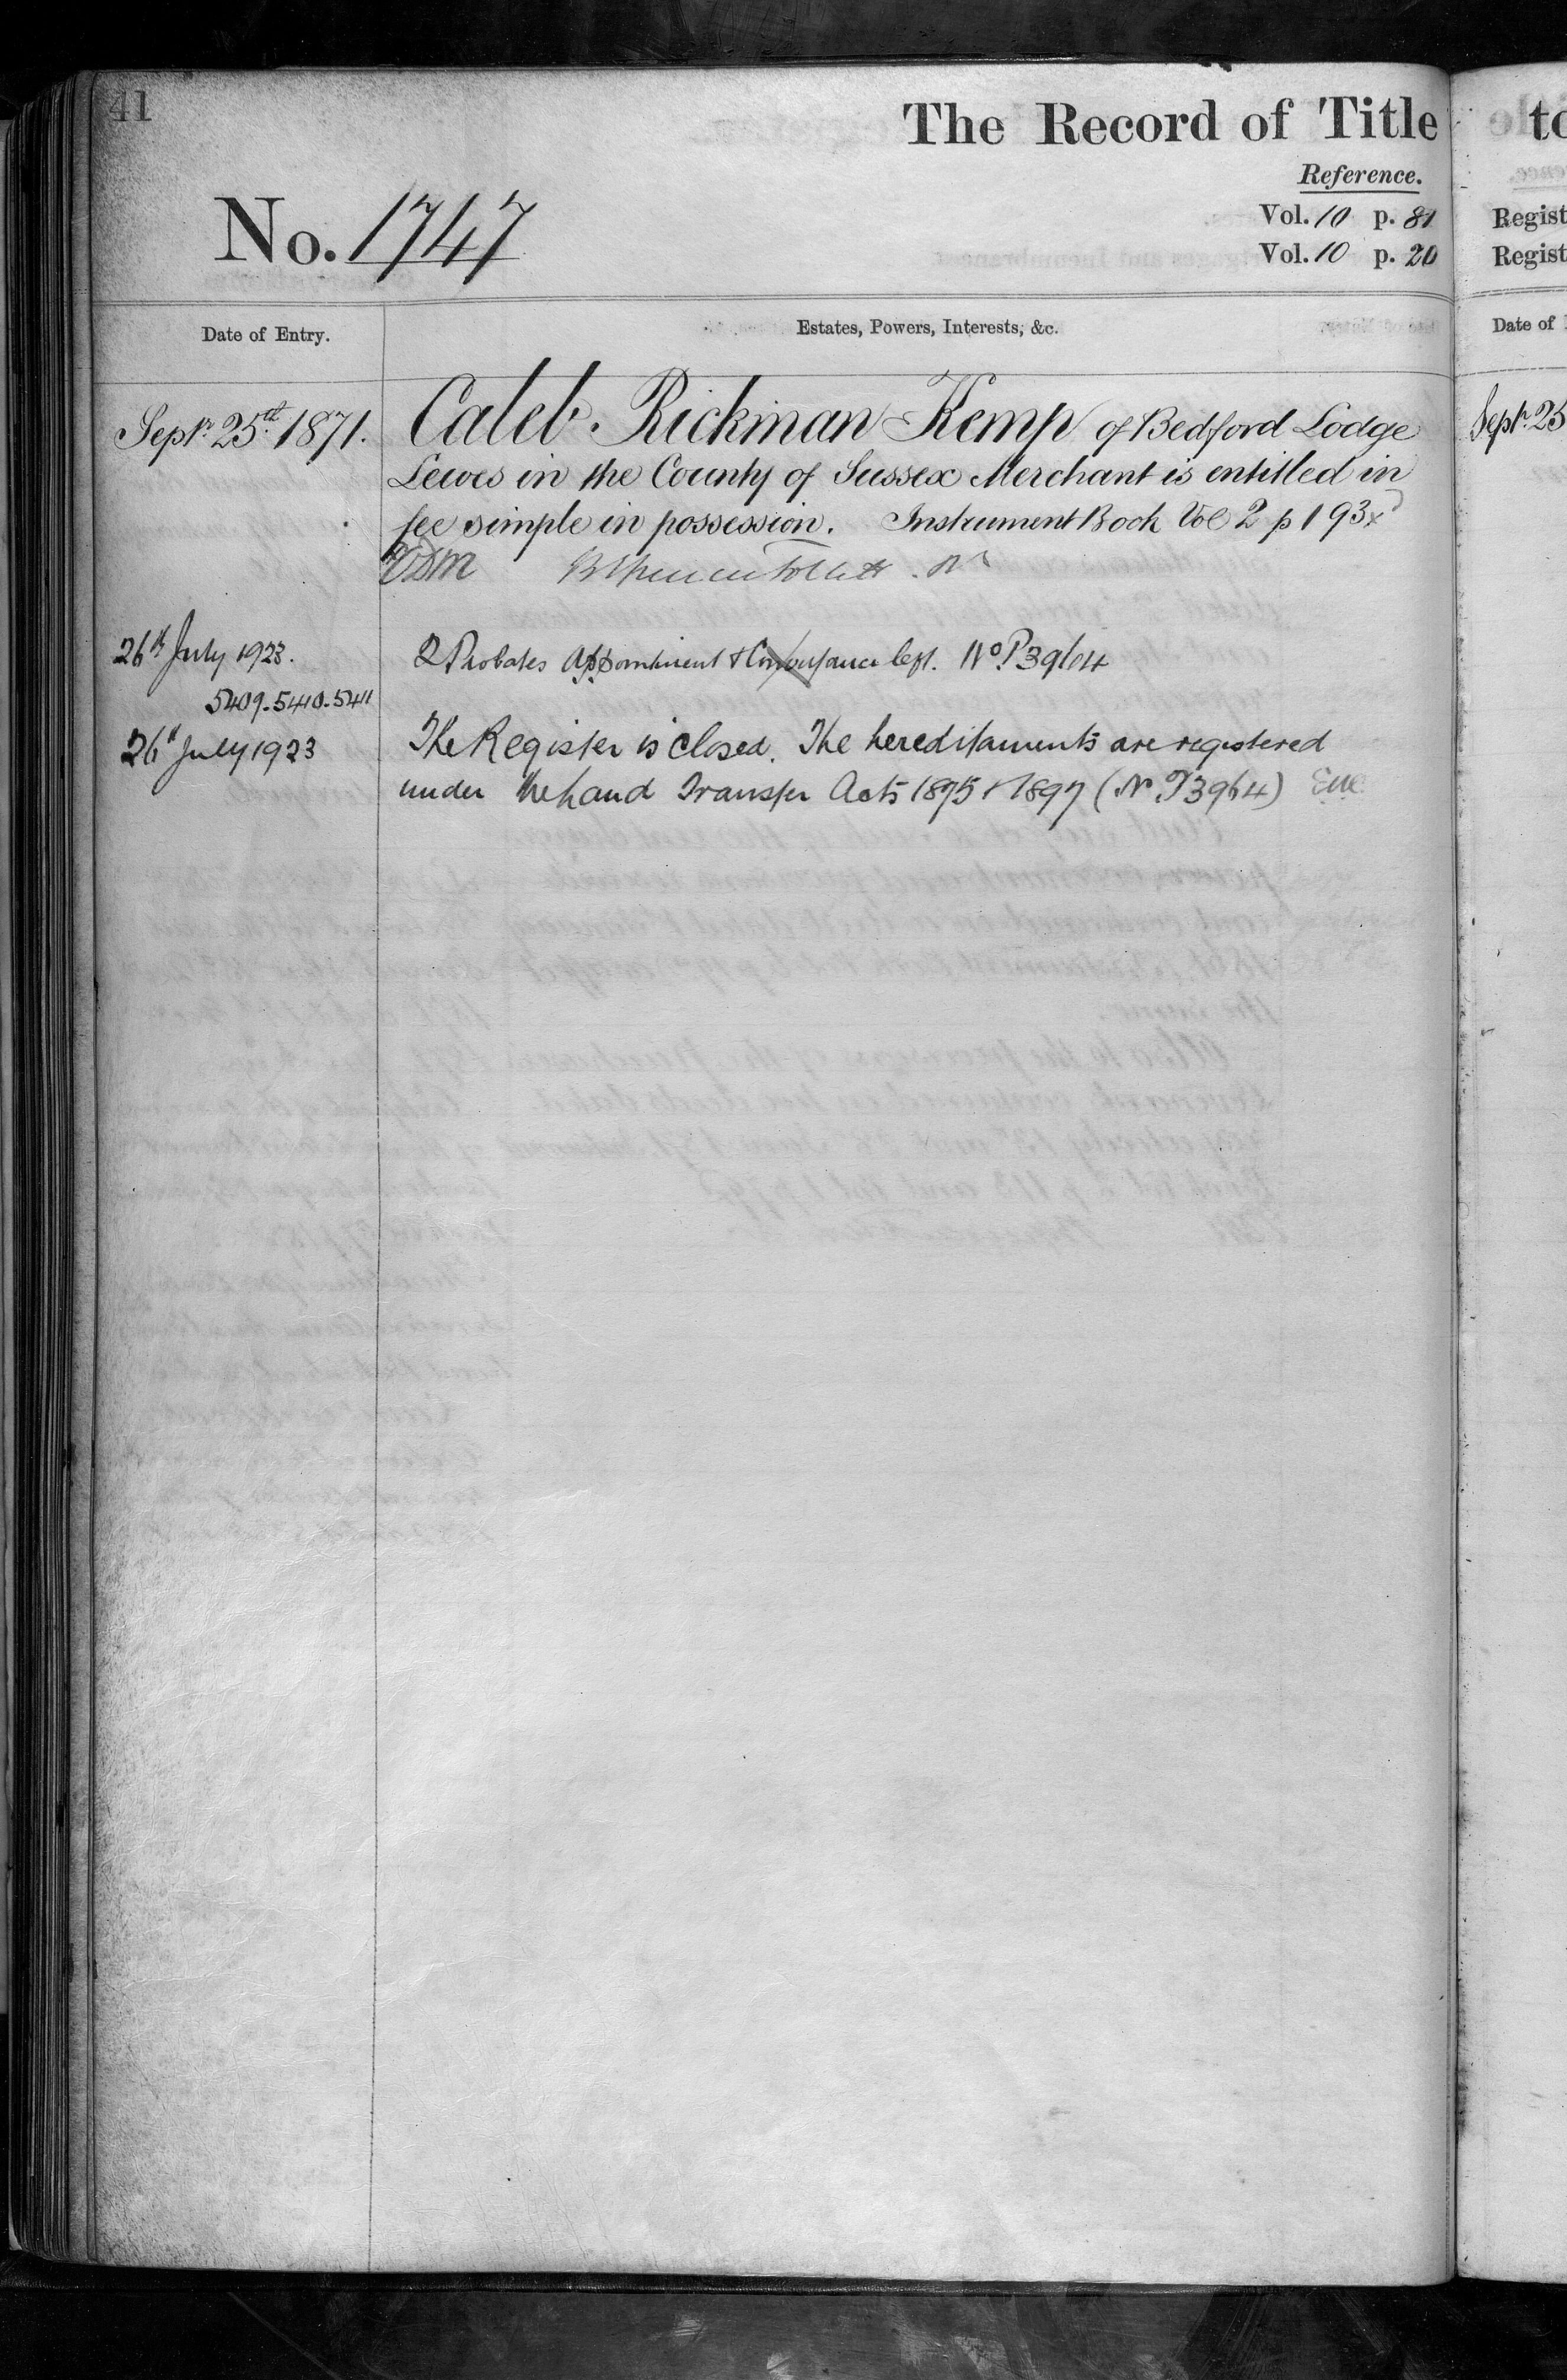 41
The Record of Title
Reference.
No. 1747
Vol. 10 p. 81
Vol. 10 p. 20
Date of Entry.
Estates, Powers, Interests, &c.
Sept. 25th 1871.
Caleb Rickman Kemp of Bedford Lodge
Lewes in the County of Sussex Merchant is entitled in
fee simple in possession. Instrument Book Vol 2 p 193
26th July 1923.
2 Probates Appointment & Conveyance left. No. P3964
5409.5410.5411
26th July 1923
The Register is closed. The hereditaments are registered
under the Land Transfer Acts 1875 & 1897 (No. P3964)
to
Regist
Regist
Date of
Sept. 25